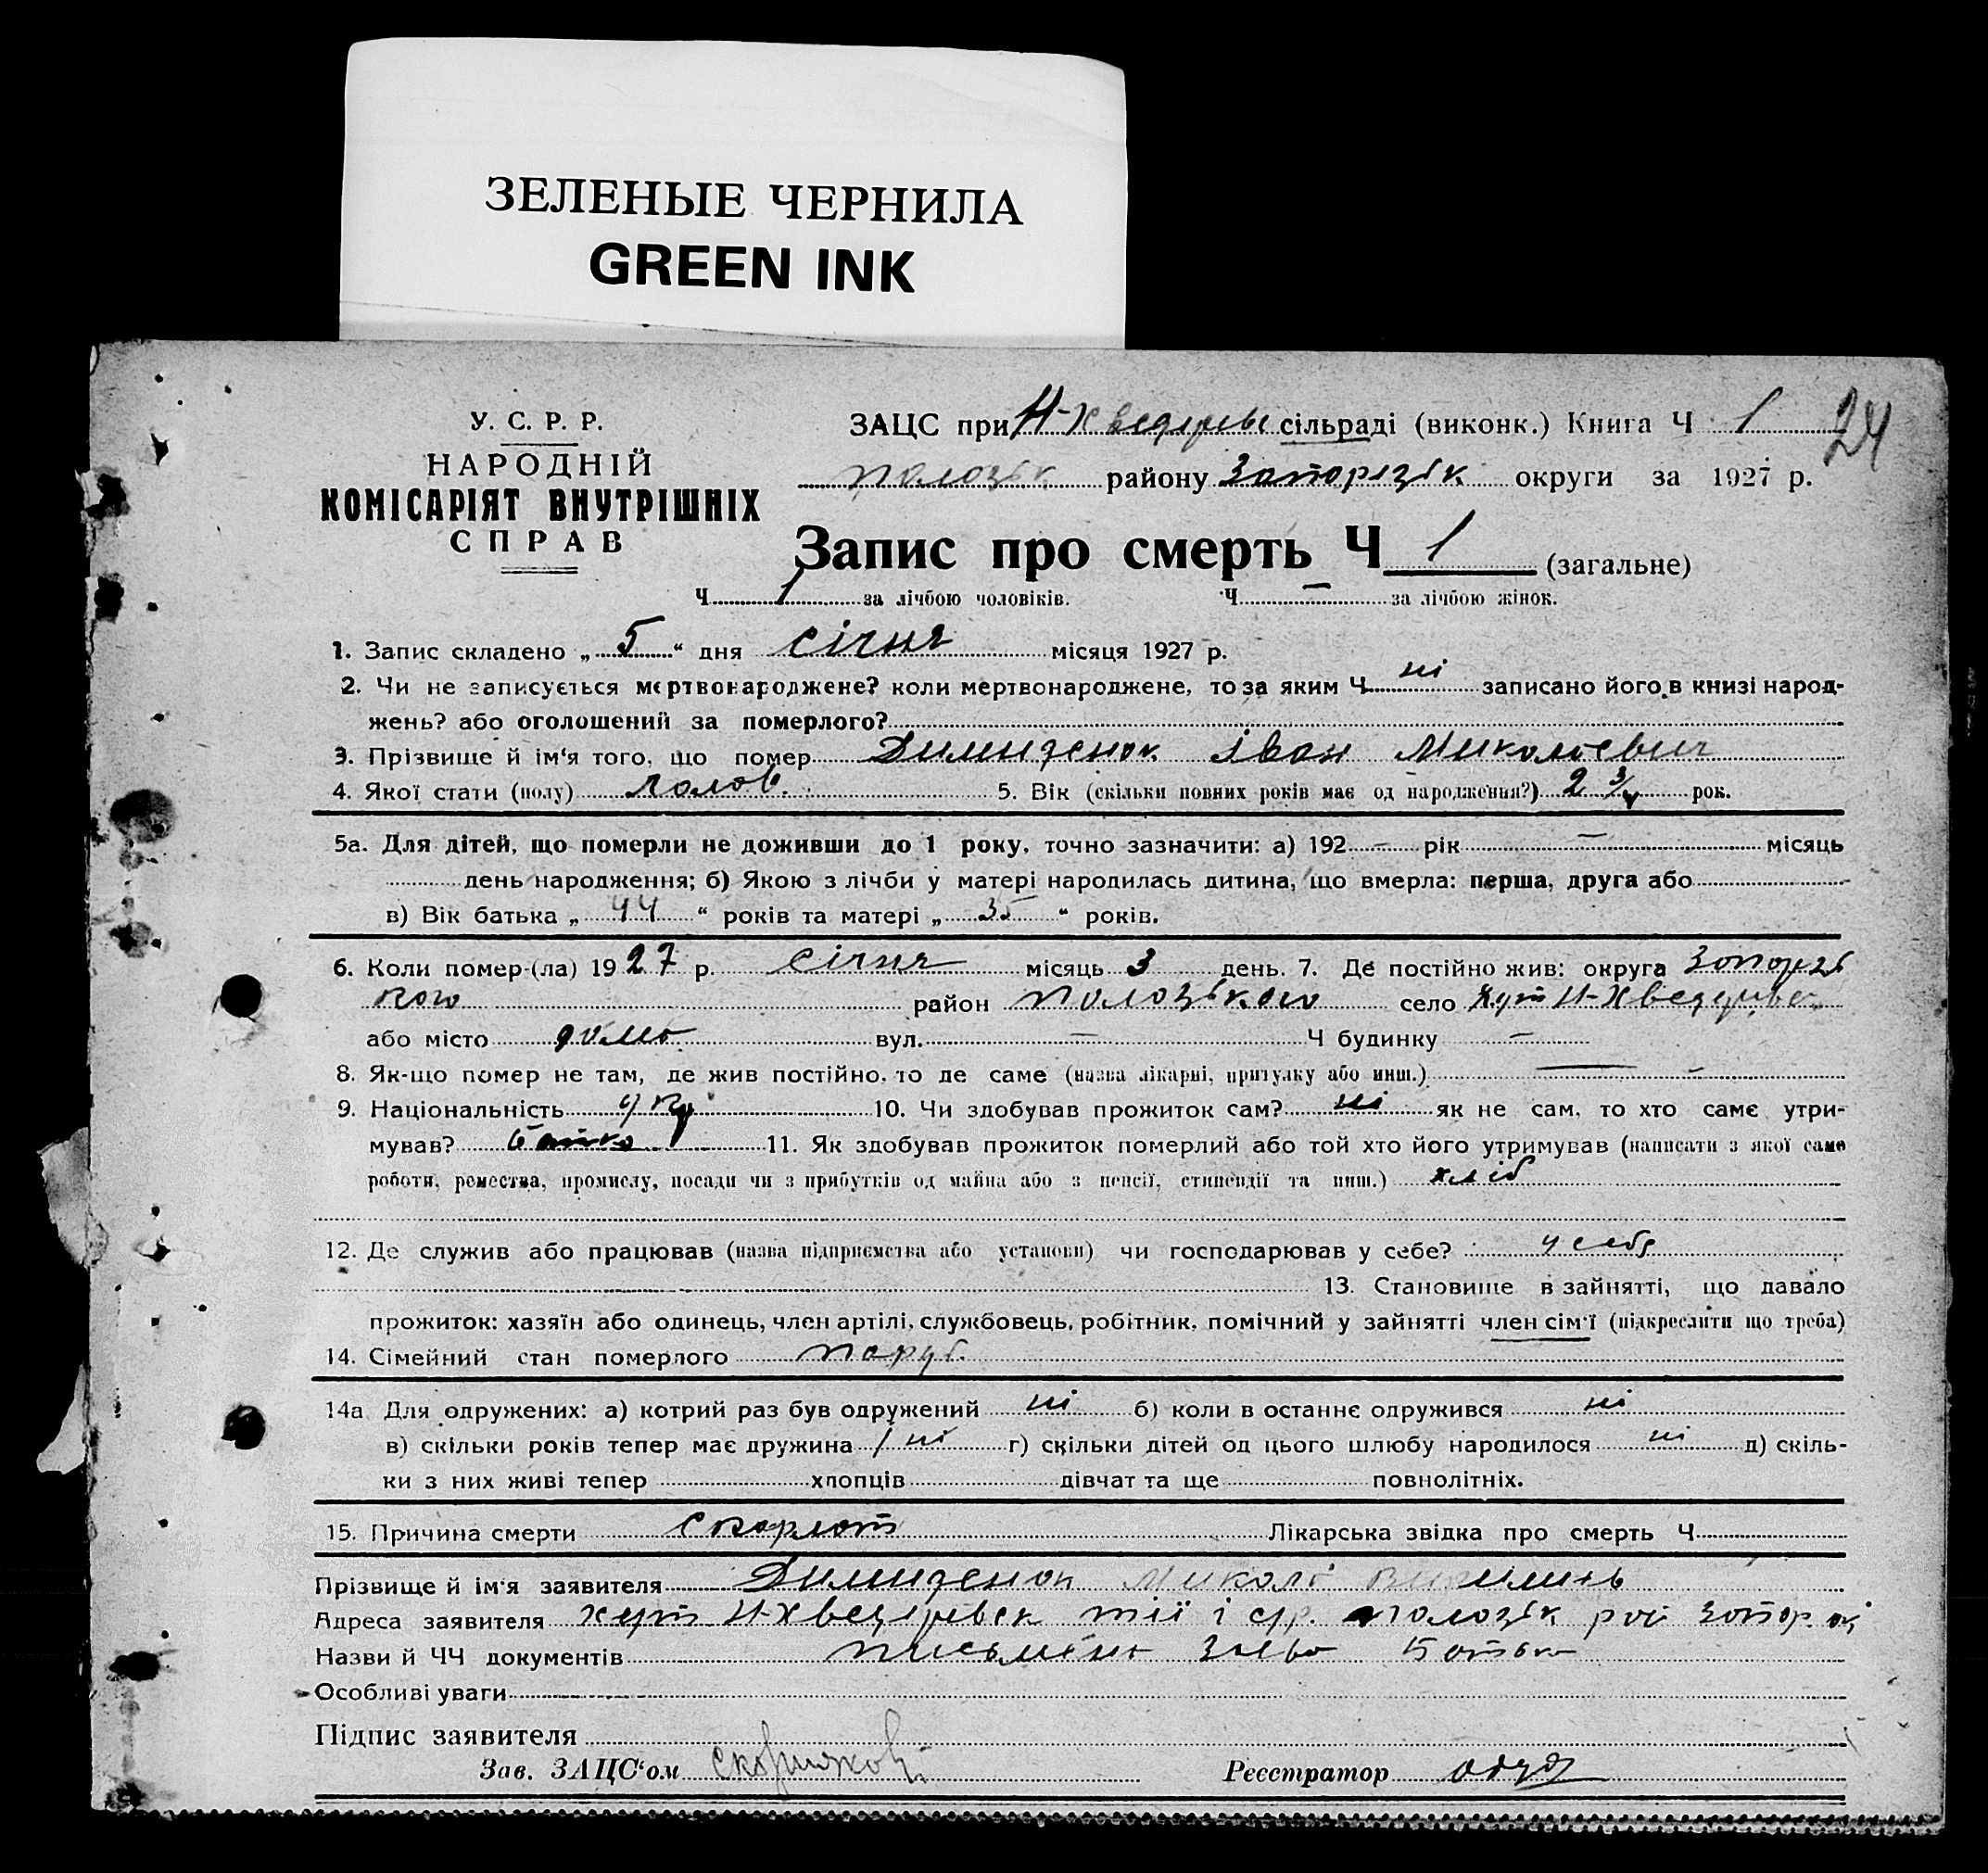 ЗЕЛЕНЫЕ ЧЕРНИЛА
GREEN INK
У. С. Р. Р.
НАРОДНІЙ
КОМІСАРІЯТ ВНУТРІШНІХ
СПРАВ
ЗАЦС при Н-Хведорівс сільраді (виконк.) Книга Ч 1 24
полозьк району Запорізьк округи за 1927 р.
Запис про смерть Ч 1 (загальне)
Ч 1 за лічбою чоловіків. Ч — за лічбою жінок.
1. Запис складено „ 5 “ дня січня місяця 1927 р.
2. Чи не записується мертвонароджене? коли мертвонароджене, то за яким Ч ні записано його в книзі народ-
жень? або оголошений за померлого?
3. Прізвище й ім'я того, що помер Димиденок Іван Миколаевич
4. Якої стати (полу) чолов. 5. Вік (скільки повних років має од народження?) 2 3/4 рок.
5а. Для дітей, що померли не доживши до 1 року, точно зазначити: а) 192 — рік — місяць
день народження; б) Якою з лічби у матері народилась дитина, що вмерла: перша, друга або
в) Вік батька „ 44 “ років та матері „ 35 “ років.
6. Коли помер-(ла) 1927 р. січня місяць 3 день. 7. Де постійно жив: округа Запорізь
кого район полозького село хут Н-Хведорівс
або місто дома вул. — Ч будинку —
8. Як-що помер не там, де жив постійно, то де саме (назва лікарні, притулку або инш.) —
9. Національність укр 10. Чи здобував прожиток сам? ні як не сам, то хто саме утри-
мував? батько 11. Як здобував прожиток померлий або той хто його утримував (написати з якої саме
роботи, ремества, промислу, посади чи з прибутків од майна або з пенсії, стипендії та инш.) хліб
12. Де служив або працював (назва підприємства або установи) чи господарював у себе? у себе
13. Становище в зайнятті, що давало
прожиток: хазяїн або одинець, член артілі, службовець, робітник, помічний у зайнятті член сім'ї (підкреслити що треба)
14. Сімейний стан померлого паруб.
14а Для одружених: а) котрий раз був одружений ні б) коли в останнє одружився ні
в) скільки років тепер має дружина ні г) скільки дітей од цього шлюбу народилося ні д) скіль-
ки з них живі тепер хлопців дівчат та ще повнолітніх.
15. Причина смерти скарлат Лікарська звідка про смерть Ч
Прізвище й ім'я заявителя Димиденок Микола
Адреса заявителя хут Н-Хведорівськ тії і с/р. полозьк рай запор. ок
Назви й ЧЧ документів письмена заява батька
Особливі уваги
Підпис заявителя
Зав. ЗАЦС'ом
Реєстратор